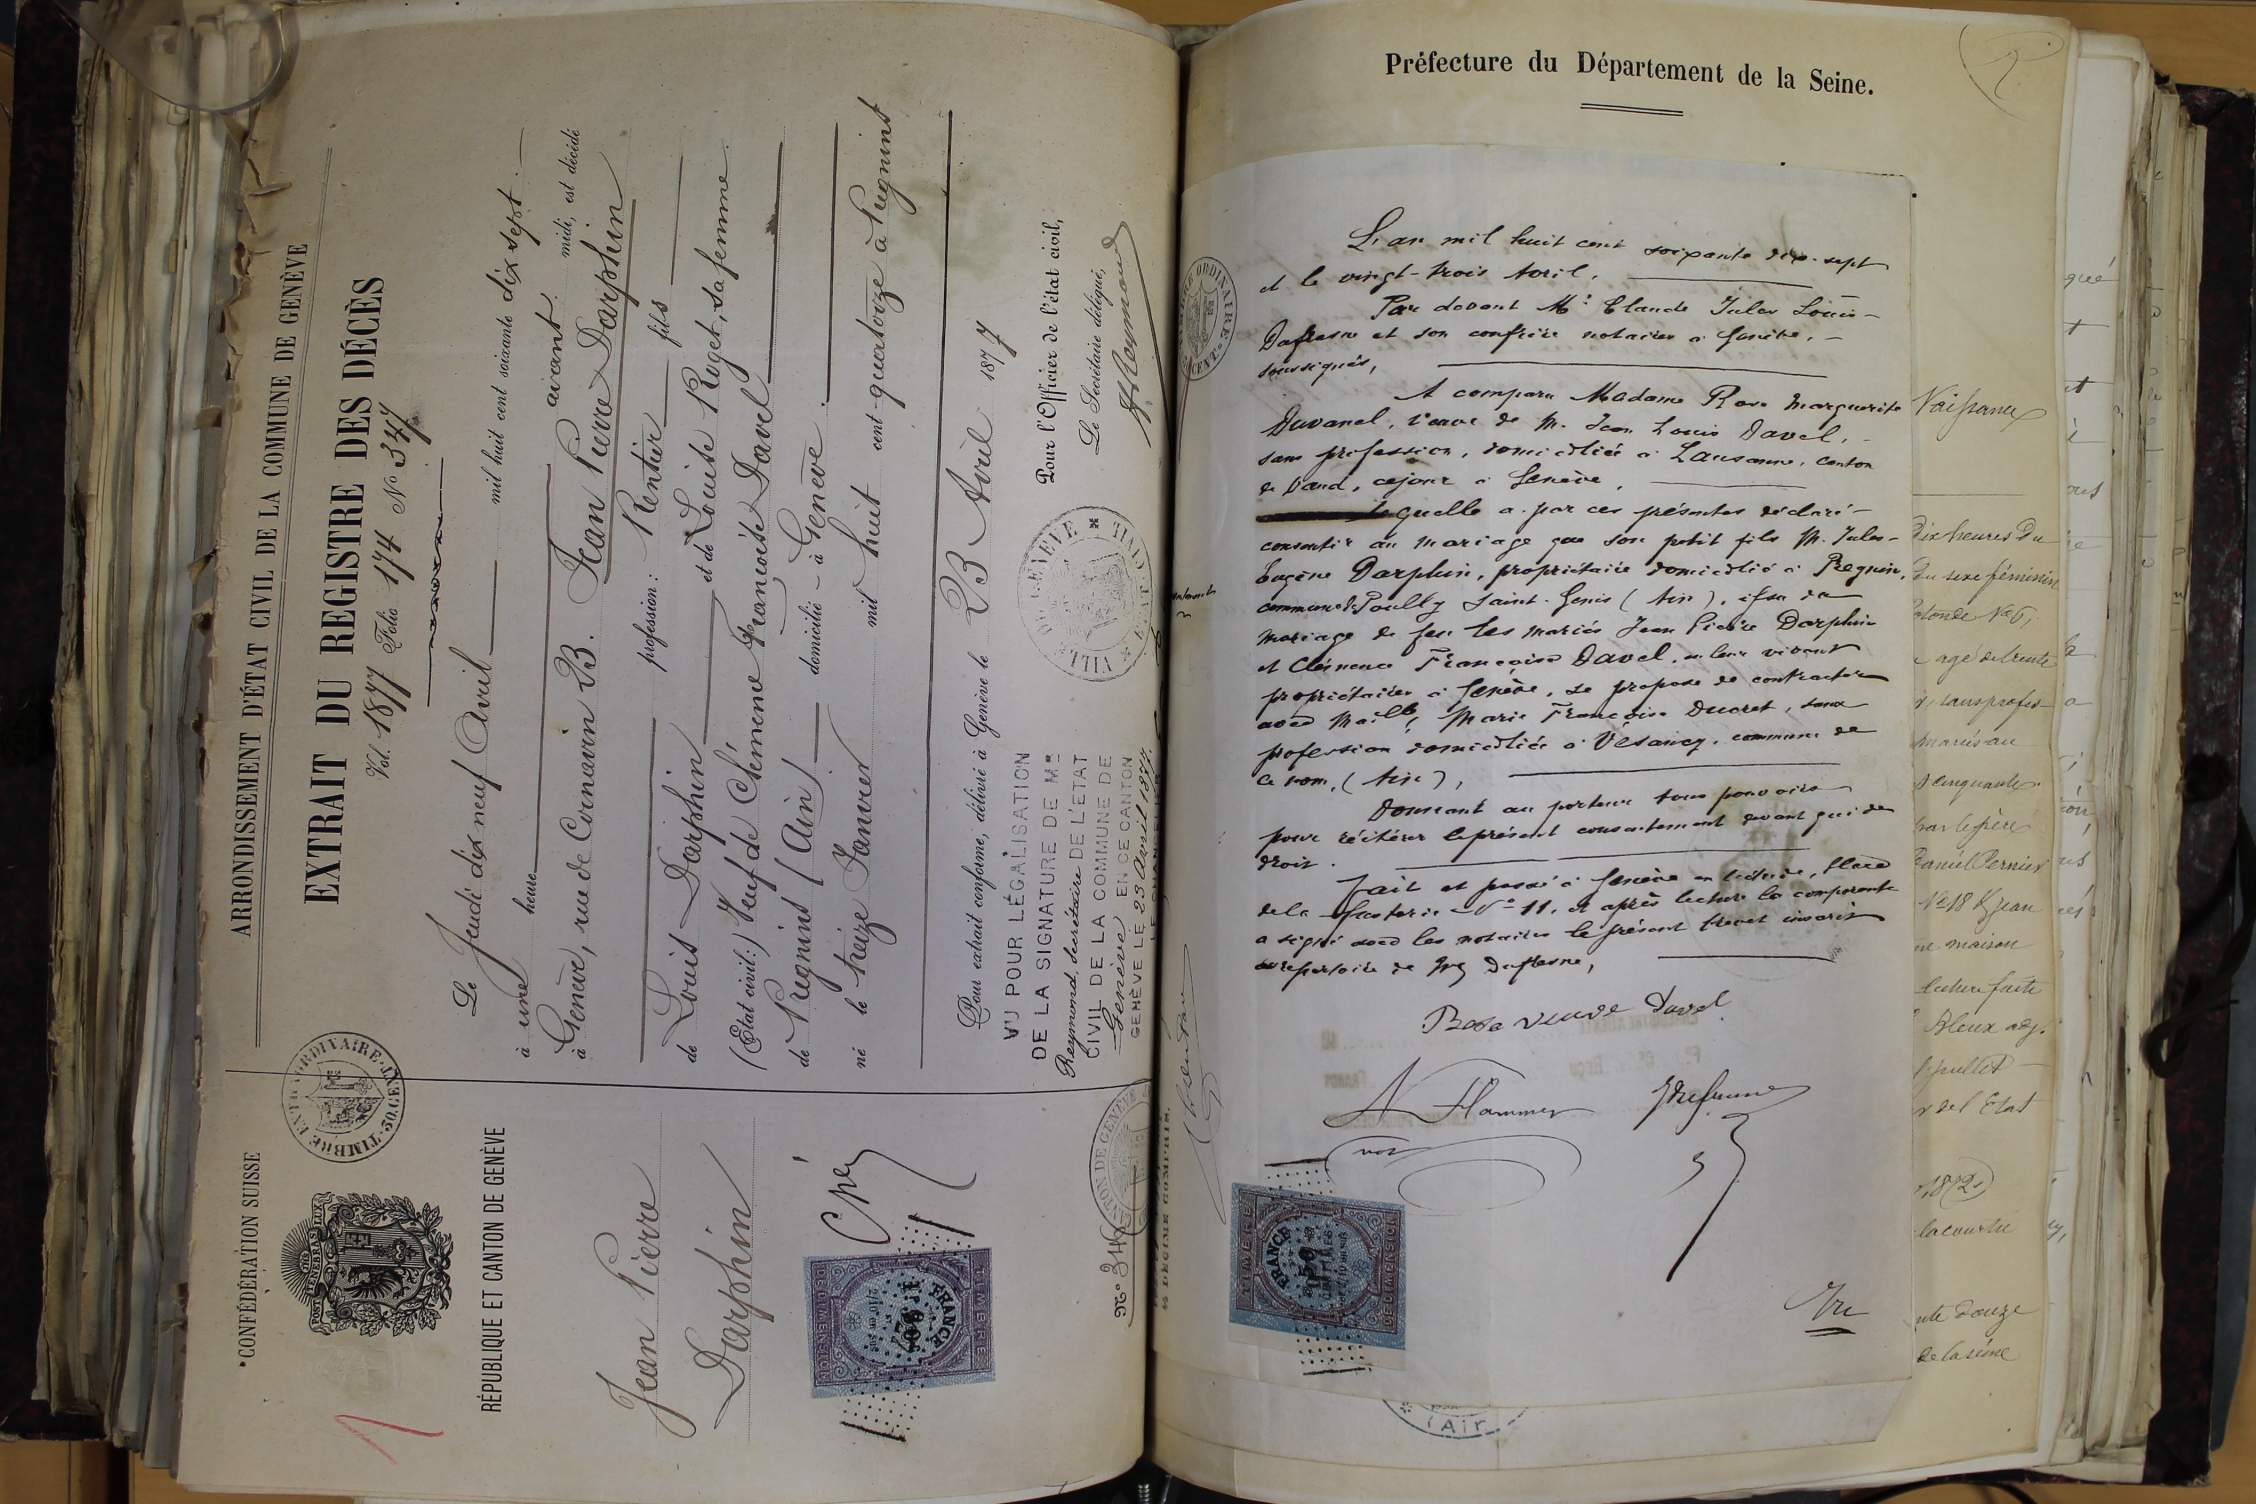 CONFÉDÉRATION SUISSE
POST TENEBRAS LUX
RÉPUBLIQUE ET CANTON DE GENÈVE
Jean Pierre
Darphin
TIMBRE
FRANCE
DE DIMENSION
ARRONDISSEMENT D'ÉTAT CIVIL DE LA COMMUNE DE GENÈVE
EXTRAIT DU REGISTRE DES DÉCÈS
Vol. 1877 Folio 174 No 347
Le Jeudi dix neuf Avril mil huit cent soixante dix sept
à une heure avant midi, est décédé
à Genève, rue de Cornavin 23. Jean Pierre Darphin
profession: Rentier fils
de Louis Darphin et de Louise Roget, sa femme.
(Etat civil:) Veuf de Clémence Françoise Davel
de Pregnins (Ain) domicilié à Genève.
né le treize Janvier mil huit cent quatorze à Pregnins
Pour extrait conforme, délivré à Genève le 23 Avril 1877
Pour l'Officier de l'état civil,
Le Secrétaire délégué,
VU POUR LÉGALISATION
DE LA SIGNATURE DE MR
Reymond, secrétaire DE L'ÉTAT
CIVIL DE LA COMMUNE DE
Genève EN CE CANTON
GENÈVE LE 23 Avril 1877.
VILLE DE GENÈVE * ÉTAT CIVIL *
No 346
Préfecture du Département de la Seine.
L'an mil huit cent soixante dix-sept
et le vingt-trois Avril.
Par devant Me Claude Jules Louis
Dufresne et son confrère notaires à Genève,
soussignés,
A comparu Madame Rose Marguerite
Duvanel, veuve de M. Jean Louis Davel,
sans profession, domiciliée à Lausanne, canton
de Vaud, à Genève,
Laquelle a par ces présentes déclaré
consentir au mariage que son petit fils M. Jules
Eugène Darphin, propriétaire domicilié à Pregnin,
commune de Pouilly Saint-Genis (Ain), issu du
mariage de feu les mariés Jean Pierre Darphin
et Clémence Françoise Davel, en leur vivant
propriétaires à Genève, se propose de contracter
avec Melle Marie Françoise Ducret, sans
profession domiciliée à Vesancy, commune de
ce nom, (Ain),
Donnant au porteur tous pouvoirs
pour réitérer le présent consentement devant qui de
droit.
Fait et passé à Genève en l'étude, Place
de la Fusterie No 11, et après lecture la comparante
a signé avec les notaires le présent brevet inscrit
au répertoire de Me Dufresne,
Rose veuve Davel
TIMBRE
FRANCE
DE DIMENSION
Naissance
dix heures du
du sexe féminin
agé de trente
sans profes
mariés au
cinquante
par le père
Daniel Pernier
No 18 &
maison
lecture faite
de l'Etat
douze
de la seine